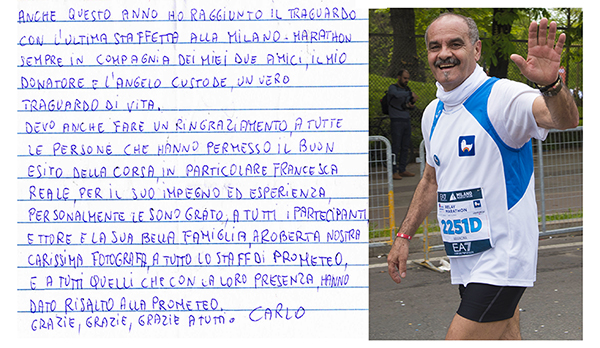 ANCHE QUESTO ANNO HO RAGGIUNTO IL TRAGUARDO
CON L'ULTIMA STAFFETTA ALLA MILANO-MARATHON
SEMPRE IN COMPAGNIA DEI MIEI DUE AMICI, IL MIO
DONATORE E L'ANGELO CUSTODE, UN VERO
TRAGUARDO DI VITA.
DEVO ANCHE FARE UN RINGRAZIAMENTO, A TUTTE
LE PERSONE CHE HANNO PERMESSO IL BUON
ESITO DELLA CORSA, IN PARTICOLARE FRANCESCA
REALE, PER IL SUO IMPEGNO ED ESPERIENZA,
PERSONALMENTE LE SONO GRATO, A TUTTI I PARTECIPANTI,
ETTORE E LA SUA BELLA FAMIGLIA, A ROBERTA NOSTRA
CARISSIMA FOTOGRAFA, A TUTTO LO STAFF DI PROMETEO,
E A TUTTI QUELLI CHE CON LA LORO PRESENZA, HANNO
DATO RISALTO ALLA PROMETEO.
GRAZIE, GRAZIE, GRAZIE A TUTTI. CARLO
EA7
MILANO
RELAY
MARATHON
2251D
EA7